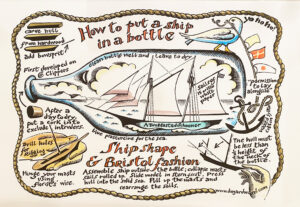 How to put a ship
in a bottle
carve hull
from hardwood
add bowsprit
First developed on
Clippers
clean bottle well and leave to dry.
yo ho ho!
permission
to lay
alongside
After a
day to dry,
put a cork in to
exclude intruders.
Drill holes
rigging
Hinge your masts
using
florist's wire.
Use plasticine for the sea.
The hull must
be less than
the height of
the neck of
Ship shape
& Bristol fashion
Assemble ship outside the bottle, collapse masts
sails rolled in. Slide model in stern first. Press
hull into the sea. Pull up the masts and
rearrange the sails.